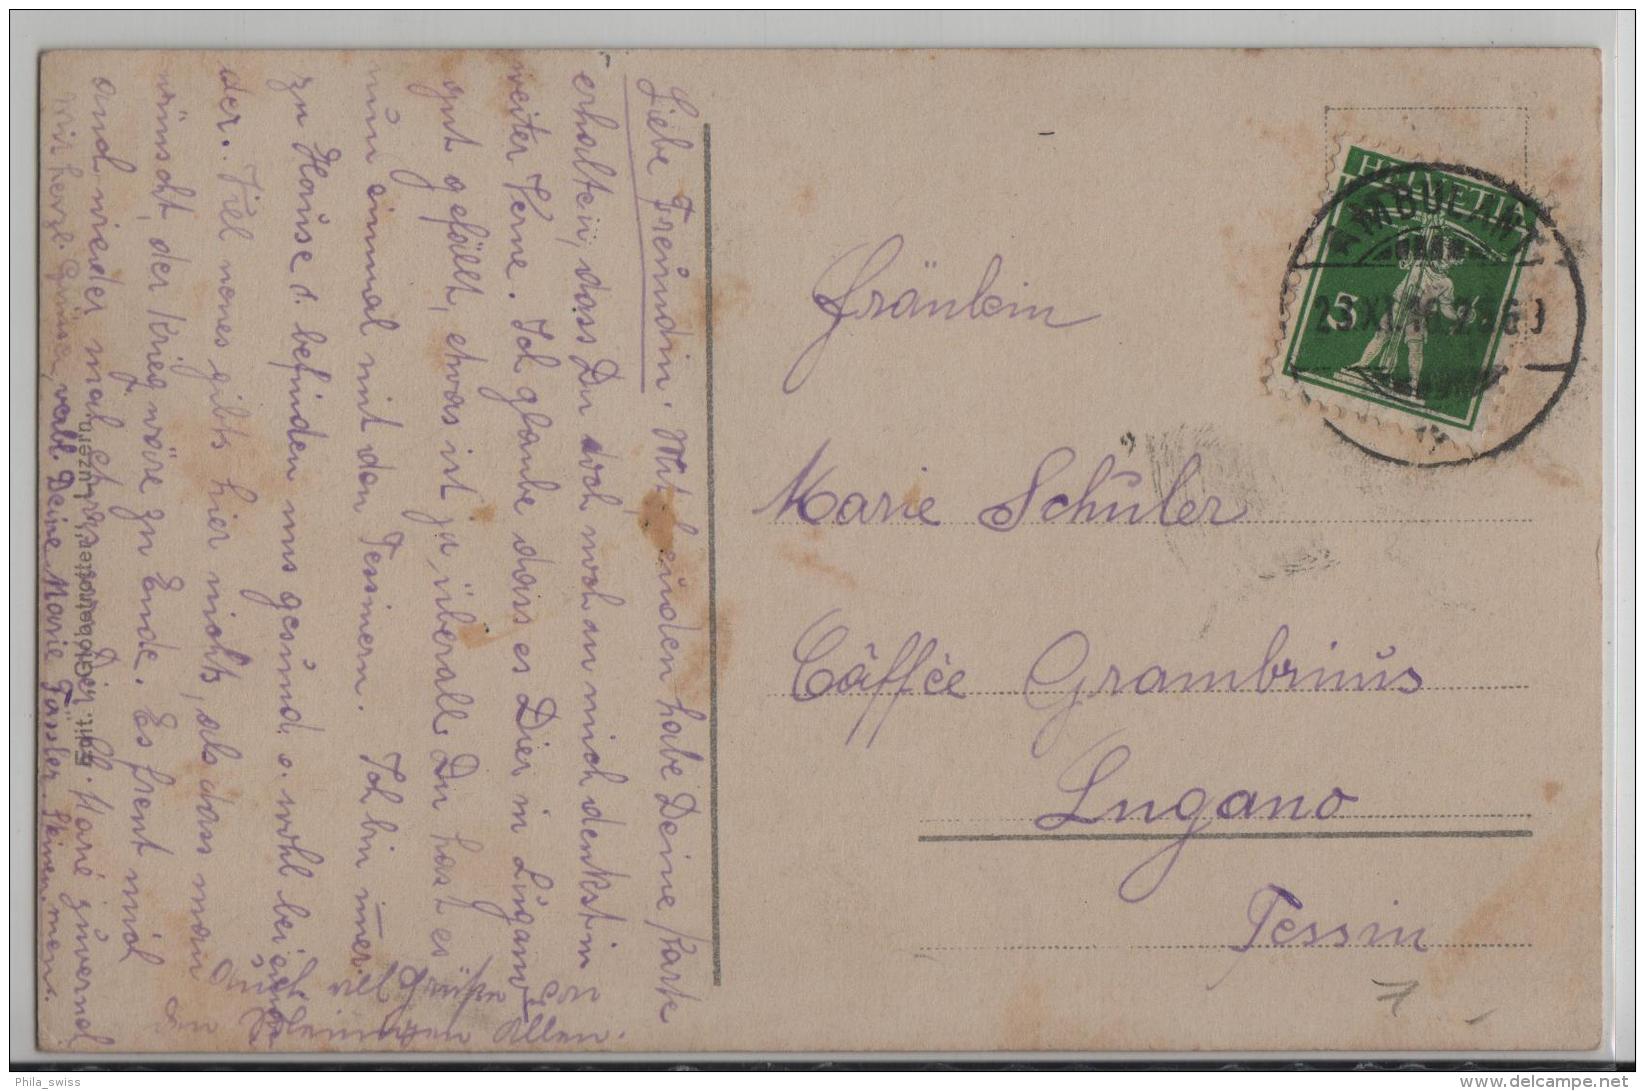 Liebe Freundin. Mit Freuden habe Deine Karte
erhalten, dass Du doch noch an mich denkst in
weiter Ferne. Ich glaube dass es Dier in Lugano
gut gefällt, etwas ist ja überall. Du hast es
nun einmal mit den Tessinern. Ich bin immer
zu Hause u. befinden uns gesund u. wohl bei
der.. Viel neues gibts hier nichts, als dass man
wünscht, der Krieg wäre zu Ende. Es freut mich
und wieder mal etwas von Dier lb. Marie
wir herzl. Grüssen, verbl. Deine Marie Fässler.
Auch viel Grüsse von
den Allen.
Edit. "Globetrotter", Luzern
HELVETIA
5
AMBULANT
Fräulein
Marie Schuler
Cáffée Grambrinus
Lugano
Tessin
Phila_swiss
www.delcampe.net